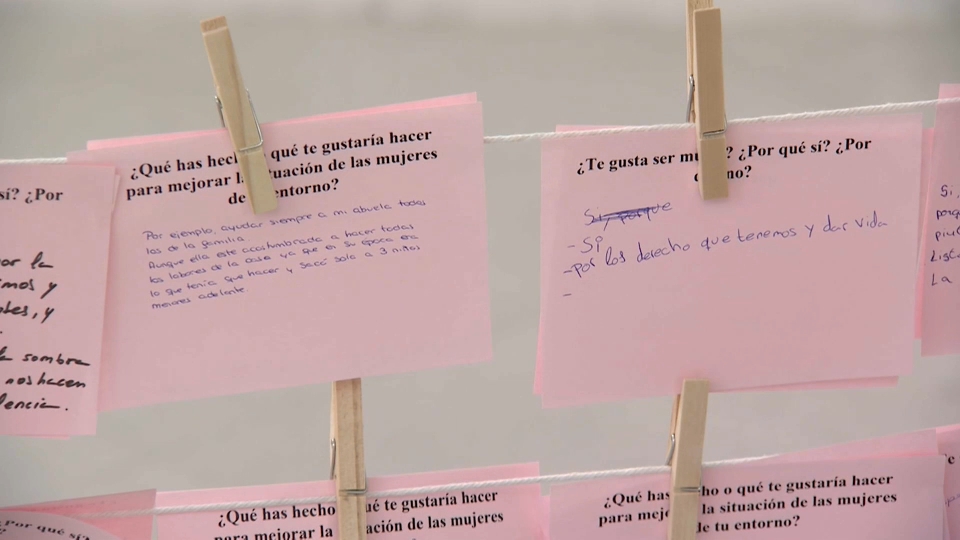 ¿Qué has hec qué te gustaría hacer
para mejorar l situación de las mujeres
de entorno?
Por ejemplo, ayudar siempre a mi abuela todas
las de la familia
Aunque ella este acostumbrada a hacer todas
las labores de la casa ya que en su época era
lo que tenía que hacer y sacó sola a 3 niños
menores adelante.
¿Te gusta ser mu ? ¿Por qué sí? ¿Por
no?
Si, porque
- Si
- por los derecho que tenemos y dar vida
-
sí? ¿Por
por la
mos y
les, y
la sombra
nos hacen
lencia.
Si,
porq
La
¿Por qué sí?
¿Qué has hecho ué te gustaría hacer
para mejorar la uación de las mujeres
¿Qué has ho o qué te gustaría hacer
para mejo la situación de las mujeres
de tu entorno?